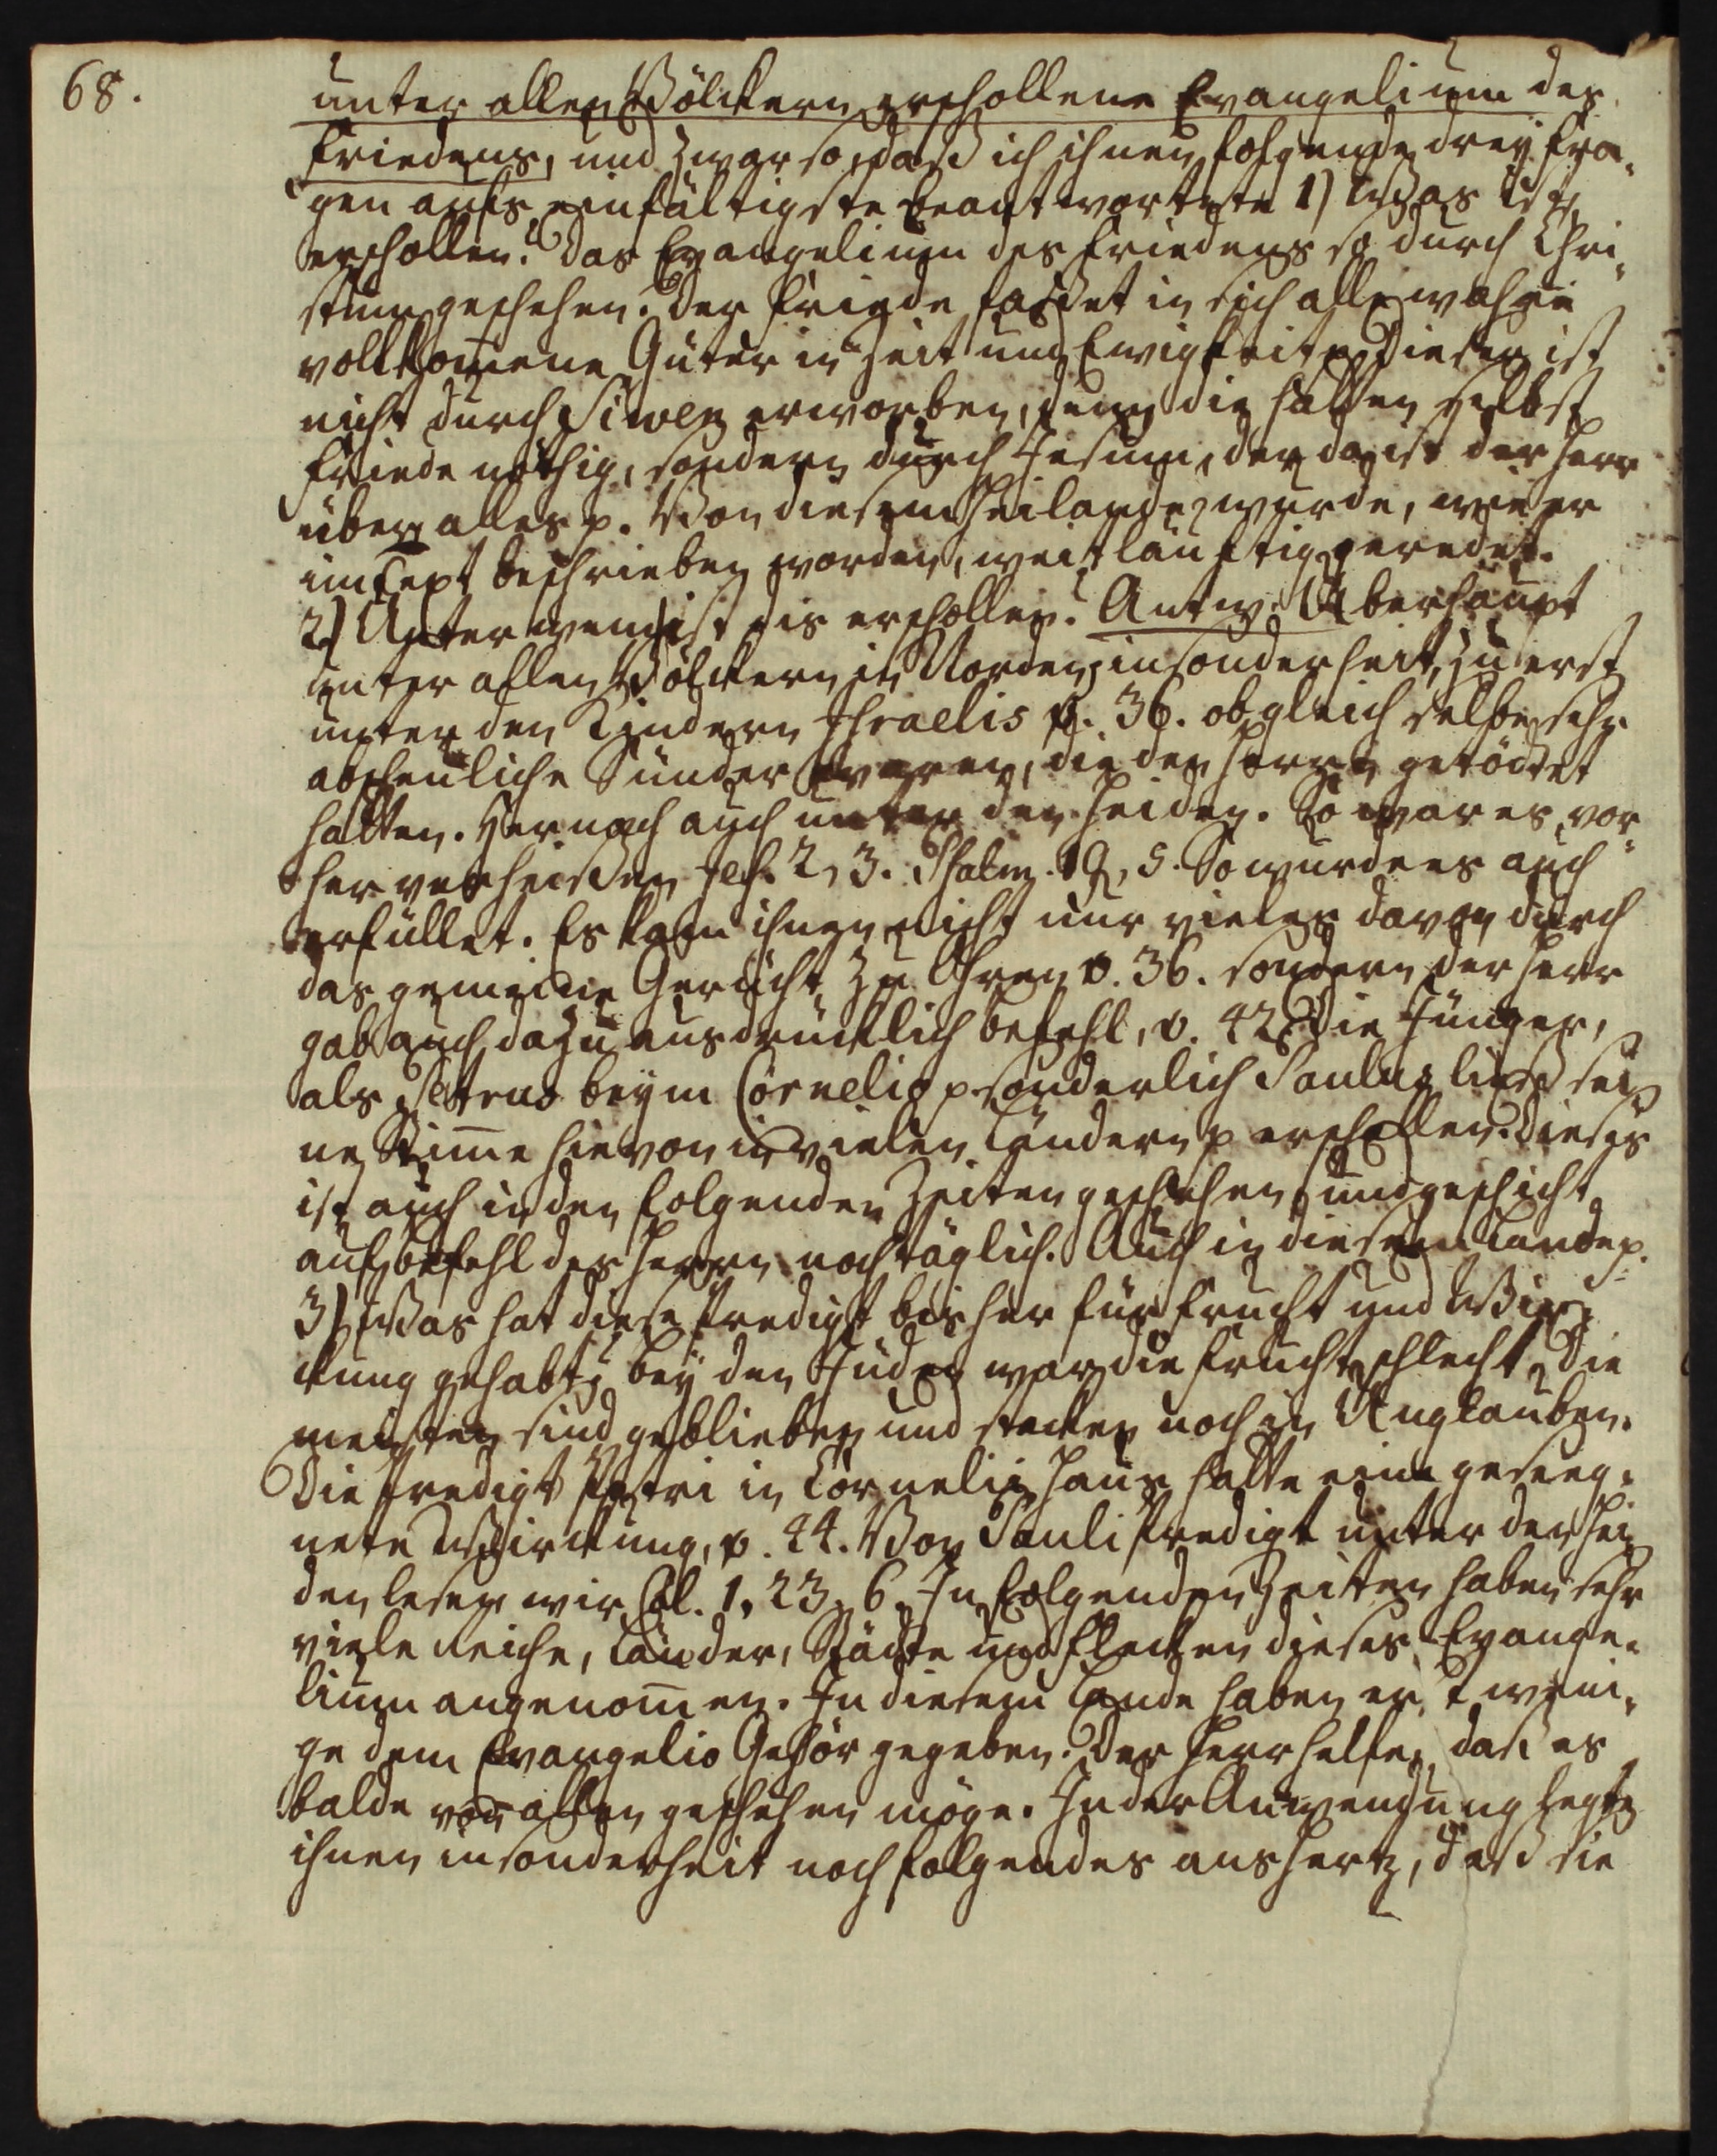 68.
unter allen Völckern erschollene Evangelium des
Friedens, und zwar so, daß ich ihnen folgende drey Fra„
gen aufs einfältigste beantwortete 1) Was ist
erschollen? Das Evangelium des Friedens so durch Chri„
stum geschehen. Der Friede fasset in sich alle wahre
vollkom̄ene Güter in Zeit und Ewigkeit p Dieser ist
nicht durch Siwen erworben, denn die hatten selbst
Friede nöthig, sondern durch Jesum, der da ist der Herr
über alles p. Von diesem Heilande wurde, wie er
im Text beschrieben worden, weitläuftig geredet.
2.) Unter wem ist dis erschollen? Antw. Überhaupt
unter allen Völckern in Norden, insonderheit, zu erst
unter den Kindern Jsraelis v. 36. obgleich selbe sehr
abscheuliche Sünder waren, die den Herrn getödtet
hatten. Hernach auch unter den Heiden. So war es vor„
her verheissen Jes. 2, 3. Psalm. 19, 5. So wurde es auch
erfüllet. Es kam ihnen nicht nur vieles davon durch
das gemeine Gerücht zu Ohren v. 36. sondern der Herr
gab auch dazu ausdrücklich befehl, v. 42. Die Jünger,
als Petrus beym Cornelio p sonderlich Paulus ließ sei„
ne Stim̄e hievon in vielen Ländern p erschallen. Dieses
ist auch in den folgenden Zeiten geschehen, und geschicht
auf befehl des Herrn noch täglich. Auch in diesem Lande p.
3) Was hat diese Predigt bisher für Frucht und Wir„
ckung gehabt? bey den Juden war die Frucht schlecht, Die
meisten sind geblieben und stecken noch in Unglauben.
Die Predigt Petri in Cornelii Hause hatte eine geseeg„
nete Wirckung, v. 44. Von Pauli Predigt unter den Hei„
den lesen wir Col. 1, 23. 6. In folgenden Zeiten haben sehr
viele Reiche, Länder, Städte und Flecken dieses Evange„
lium angenom̄en. In diesem Lande haben erst weni„
ge dem Evangelio Gehör gegeben. Der Herr helfe, daß es
balde von allen geschehen möge. In der Anwendung legte
ihnen insonderheit noch folgendes ans Hertz, daß sie